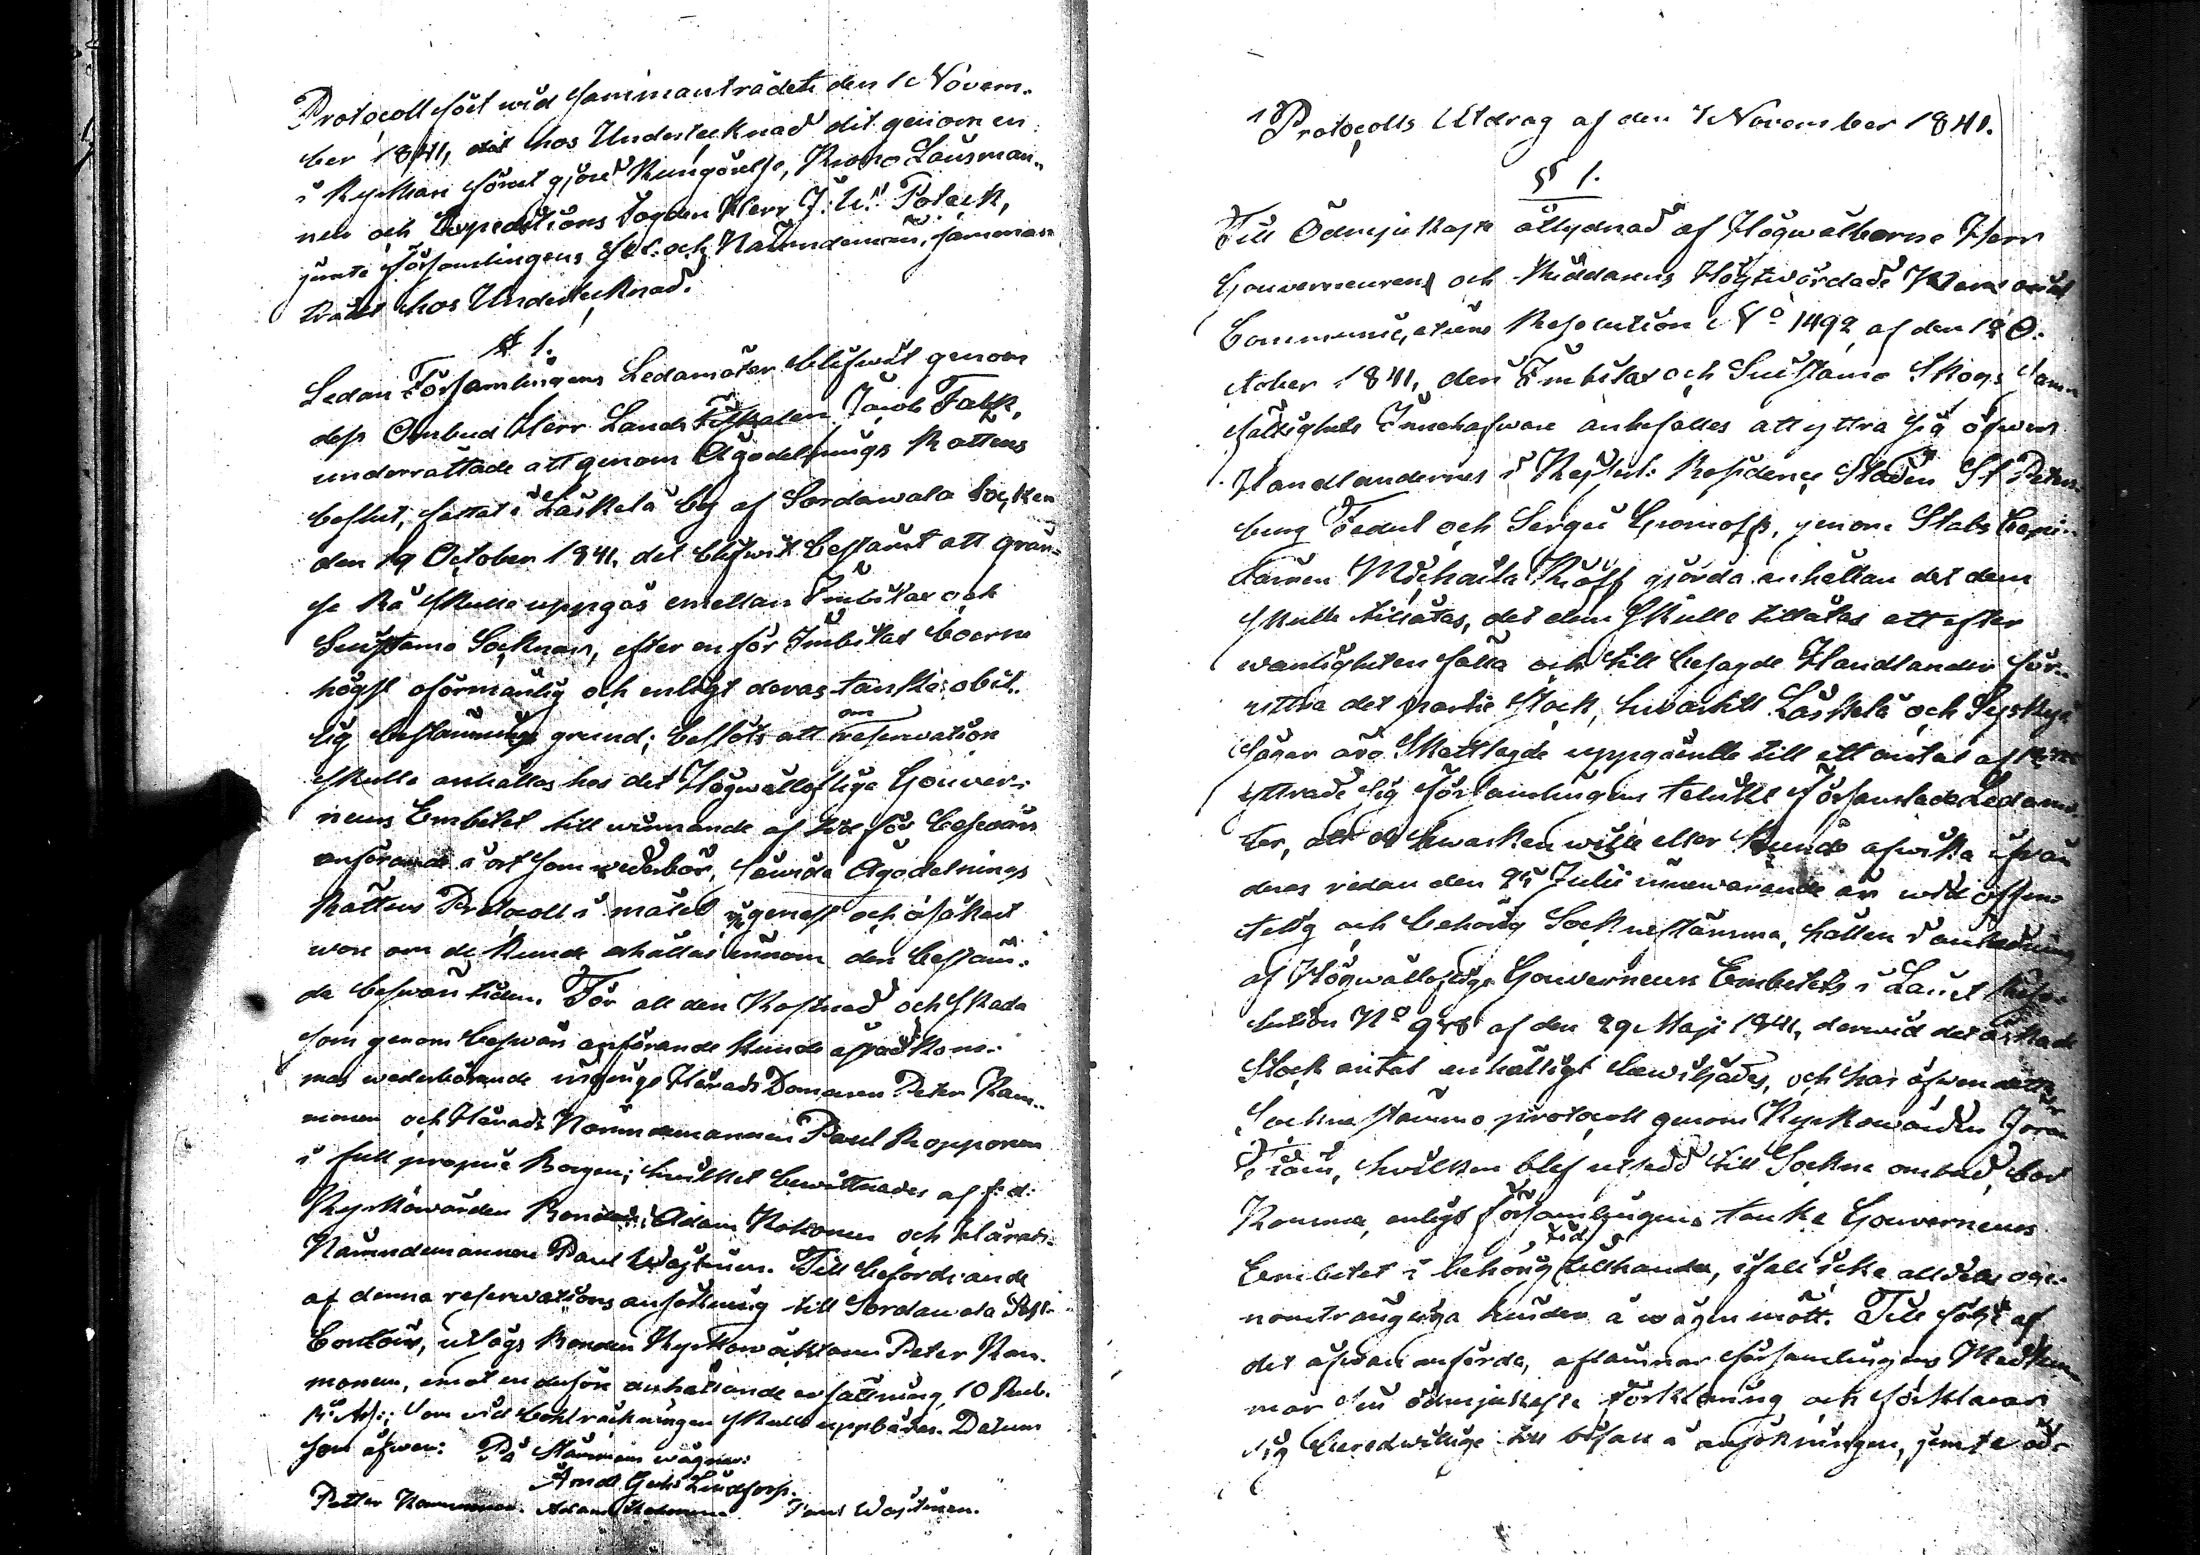 Protocoll fört wid sammanträdet den 1 Novem-
ber 1841, hos Undertecknad dit genom en
i Kyrkan förut gjord Kungörelse, Krono Länsman-
nen och Expeditions Fogden Herr J: U: Polack,
jemte Församlingens och Nämndemän, samman-
trädt hos Undertecknad.
§ 1.
Sedan Församlingens Ledamöter blifwit genom
dess Ombud Herr Lands Fiskalen Jacob Falck,
underrättade att genom Ägodelnings Rättens
beslut, fattat i Läskelä by af Sordawala Socken
den 19 October 1841, det blifwit bestämt att grän-
se Rå skulle uppgås emellan Imbilax och
Suistamo Socknar, efter en för Imbilax boerne
högst oförmånlig och enligt deras tanke obil-
lig bestämnings grund; beslöts att om reservation
skulle anhållas hos det Högwälloflige Gouver-
neurs Embetet till winnande af tid för beswärs
anförande å ort som wederbör, såwida Ägodelnings
Rättens Protocoll i målet ej genast och osäkert
wore om de kunde erhållas innom den bestäm-
da beswärs tiden. För all den Kostnad och skada
som genom beswärs anförande kunde åstadkom-
mas wederbörande Härads Domaren Peter Kam-
monen och Härads Nämndemannen Paul Ropponen
i full proprie Borgen; hwilket bewittnades af f: d:
Kyrkowärden Bonden Adam Kokonen och Härads
Nämndemannen Paul Wajtinen. Till befordrande
af denna reservations ansökning till Sordawala Post-
Contoir, utsågs Bonden Kyrkowäktaren Peter Kam-
monen, emot en derföre erhållande ersättning 10 Rub.
B:co Ass:; som wid bohlräkningen skulle uppbäras. Datum
som ofwan: På Stämmans wägnar:
Arnd: Gust: Lindfors.
Petter Kammonen. Adam Kokonen. Paul Wajtinen.
Protocolls Utdrag af den 1 November 1841.
§ 1.
Till Ödmjukaste åtlydnad af Högwälborne Herr
Gouverneurens och Riddarens Högtwördade
Communications Resolution N:o 1492 af den 12 O-
ctober 1841, den Imbilax och Suistamo Skogs Sam-
fällighets Innehafware anbefalles att yttra sig öfwer
Handlandernes i Kejserl: Residence Staden St Peters-
burg Fedul och Sergei Gromoffs, genom Stabs Capi-
tainen Michaila Kiöff gjorda anhållan det dem
skulle tillåtas, det dem skulle tillåtas att efter
wanligheten fälla och till besagde Handlander för-
yttra det partie stock, hwartill Läskelä och Syskyjä
Sågar äro Skattlagde uppgående till ett antal af
yttrade sig Församlingens talrikt församlade Ledamö-
ter, att de hwarken wille eller kunde afwika ifrån
deras redan den 25 Julii innewarande år wid offen-
telig och behörig Sockne stämma, hållen i anledning
af Högwälloflige Gouverneurs Embetets i Länet Reso-
lution N:o 978 af den 29 Maji 1841, derwid det äskade
Stock antal enhälligt bewiljades, och har äfwen detta
Sockne stämmo protocoll genom Kyrkowärden Jöran
hwilken blef utsedd till Sockne ombud, bordt
komma, enligt församlingens tanke Gouverneurs
Embetet i behörig tid tillhanda, ifall icke alldeles oge-
nomträngliga hinder å wägen mött. Till följd af
det ofwan anförda, aflämnar församlingens Medlem-
mar sin ödmjukaste förklaring och förklarar
sig beredwillige till bifall å ansökningen, jemte öd-